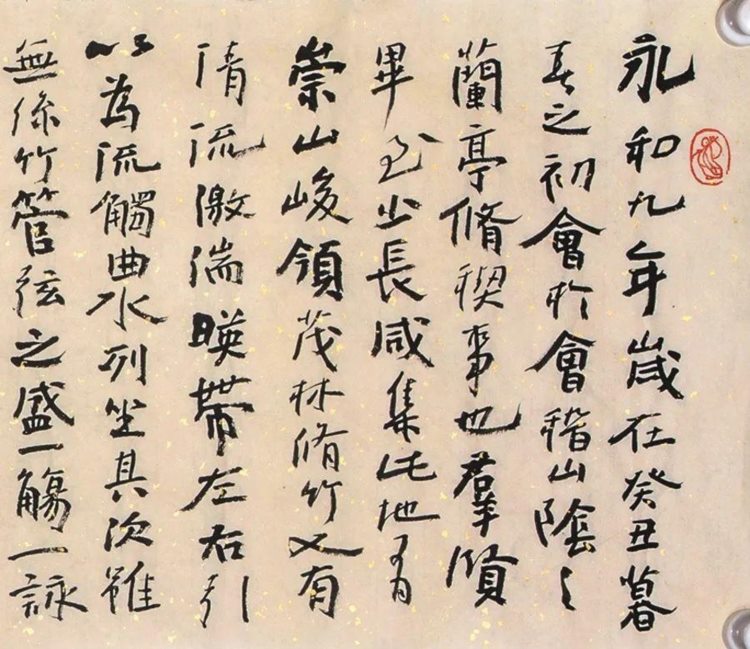 永和九年歲在癸丑暮
春之初會於會稽山陰之
蘭亭脩稧事也羣賢
畢至少長咸集此地有
崇山峻領茂林脩竹又有
清流激湍暎帶左右引
以為流觸曲水列坐其次雖
無絲竹管弦之盛一觴一詠